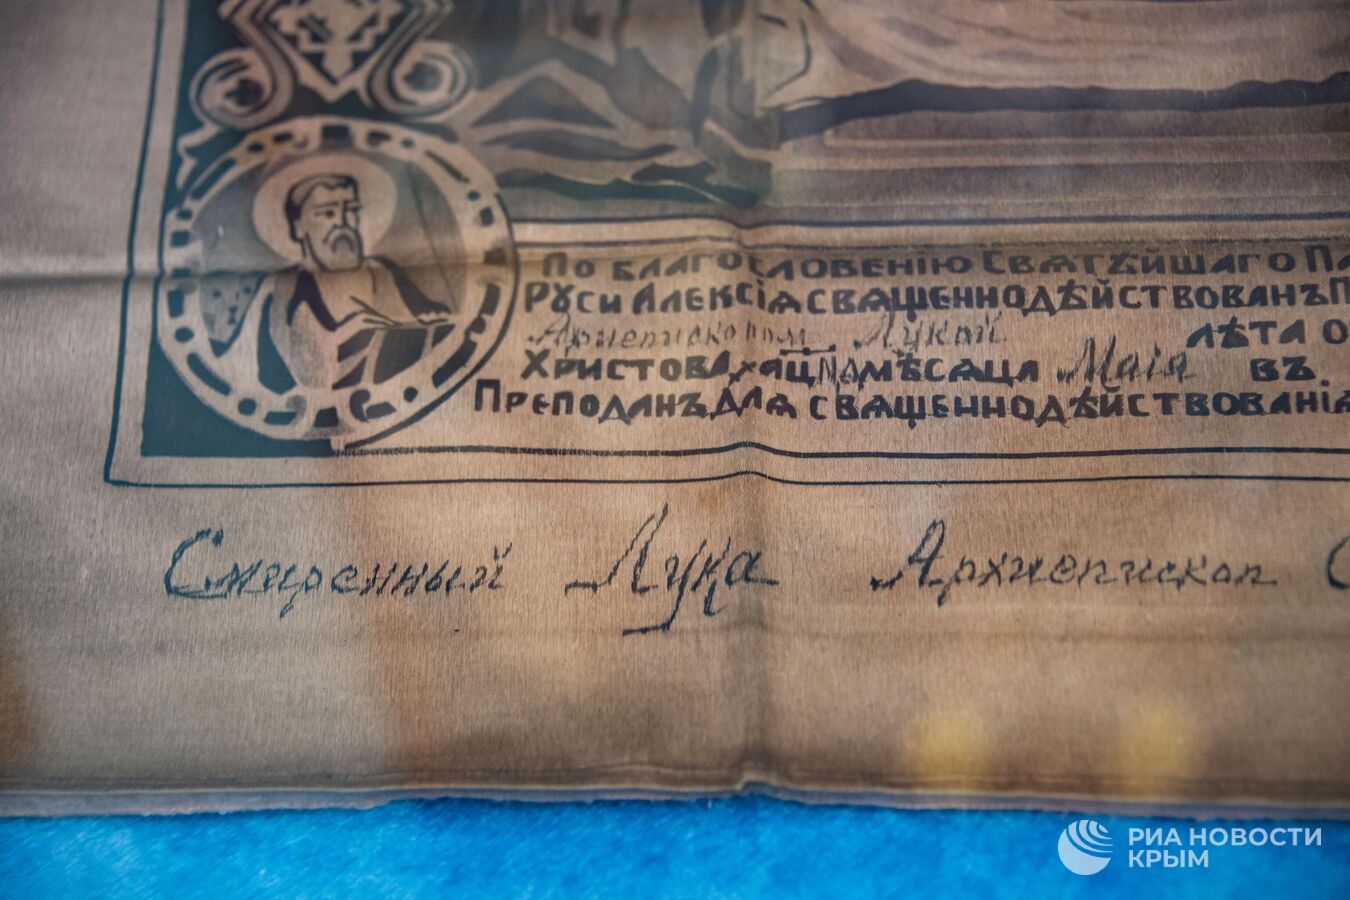 По благословению Свѧтѣишаго Па
Руси Алексіѧ свѧщеннодѣйствованъ П
Архиепископом Лукой лѣта о
Христова хацна мѣсѧца Маія въ
Преподанъ для свѧщеннодѣйствованіѧ
Смиренный Лука Архиепископ С
РИА НОВОСТИ
КРЫМ